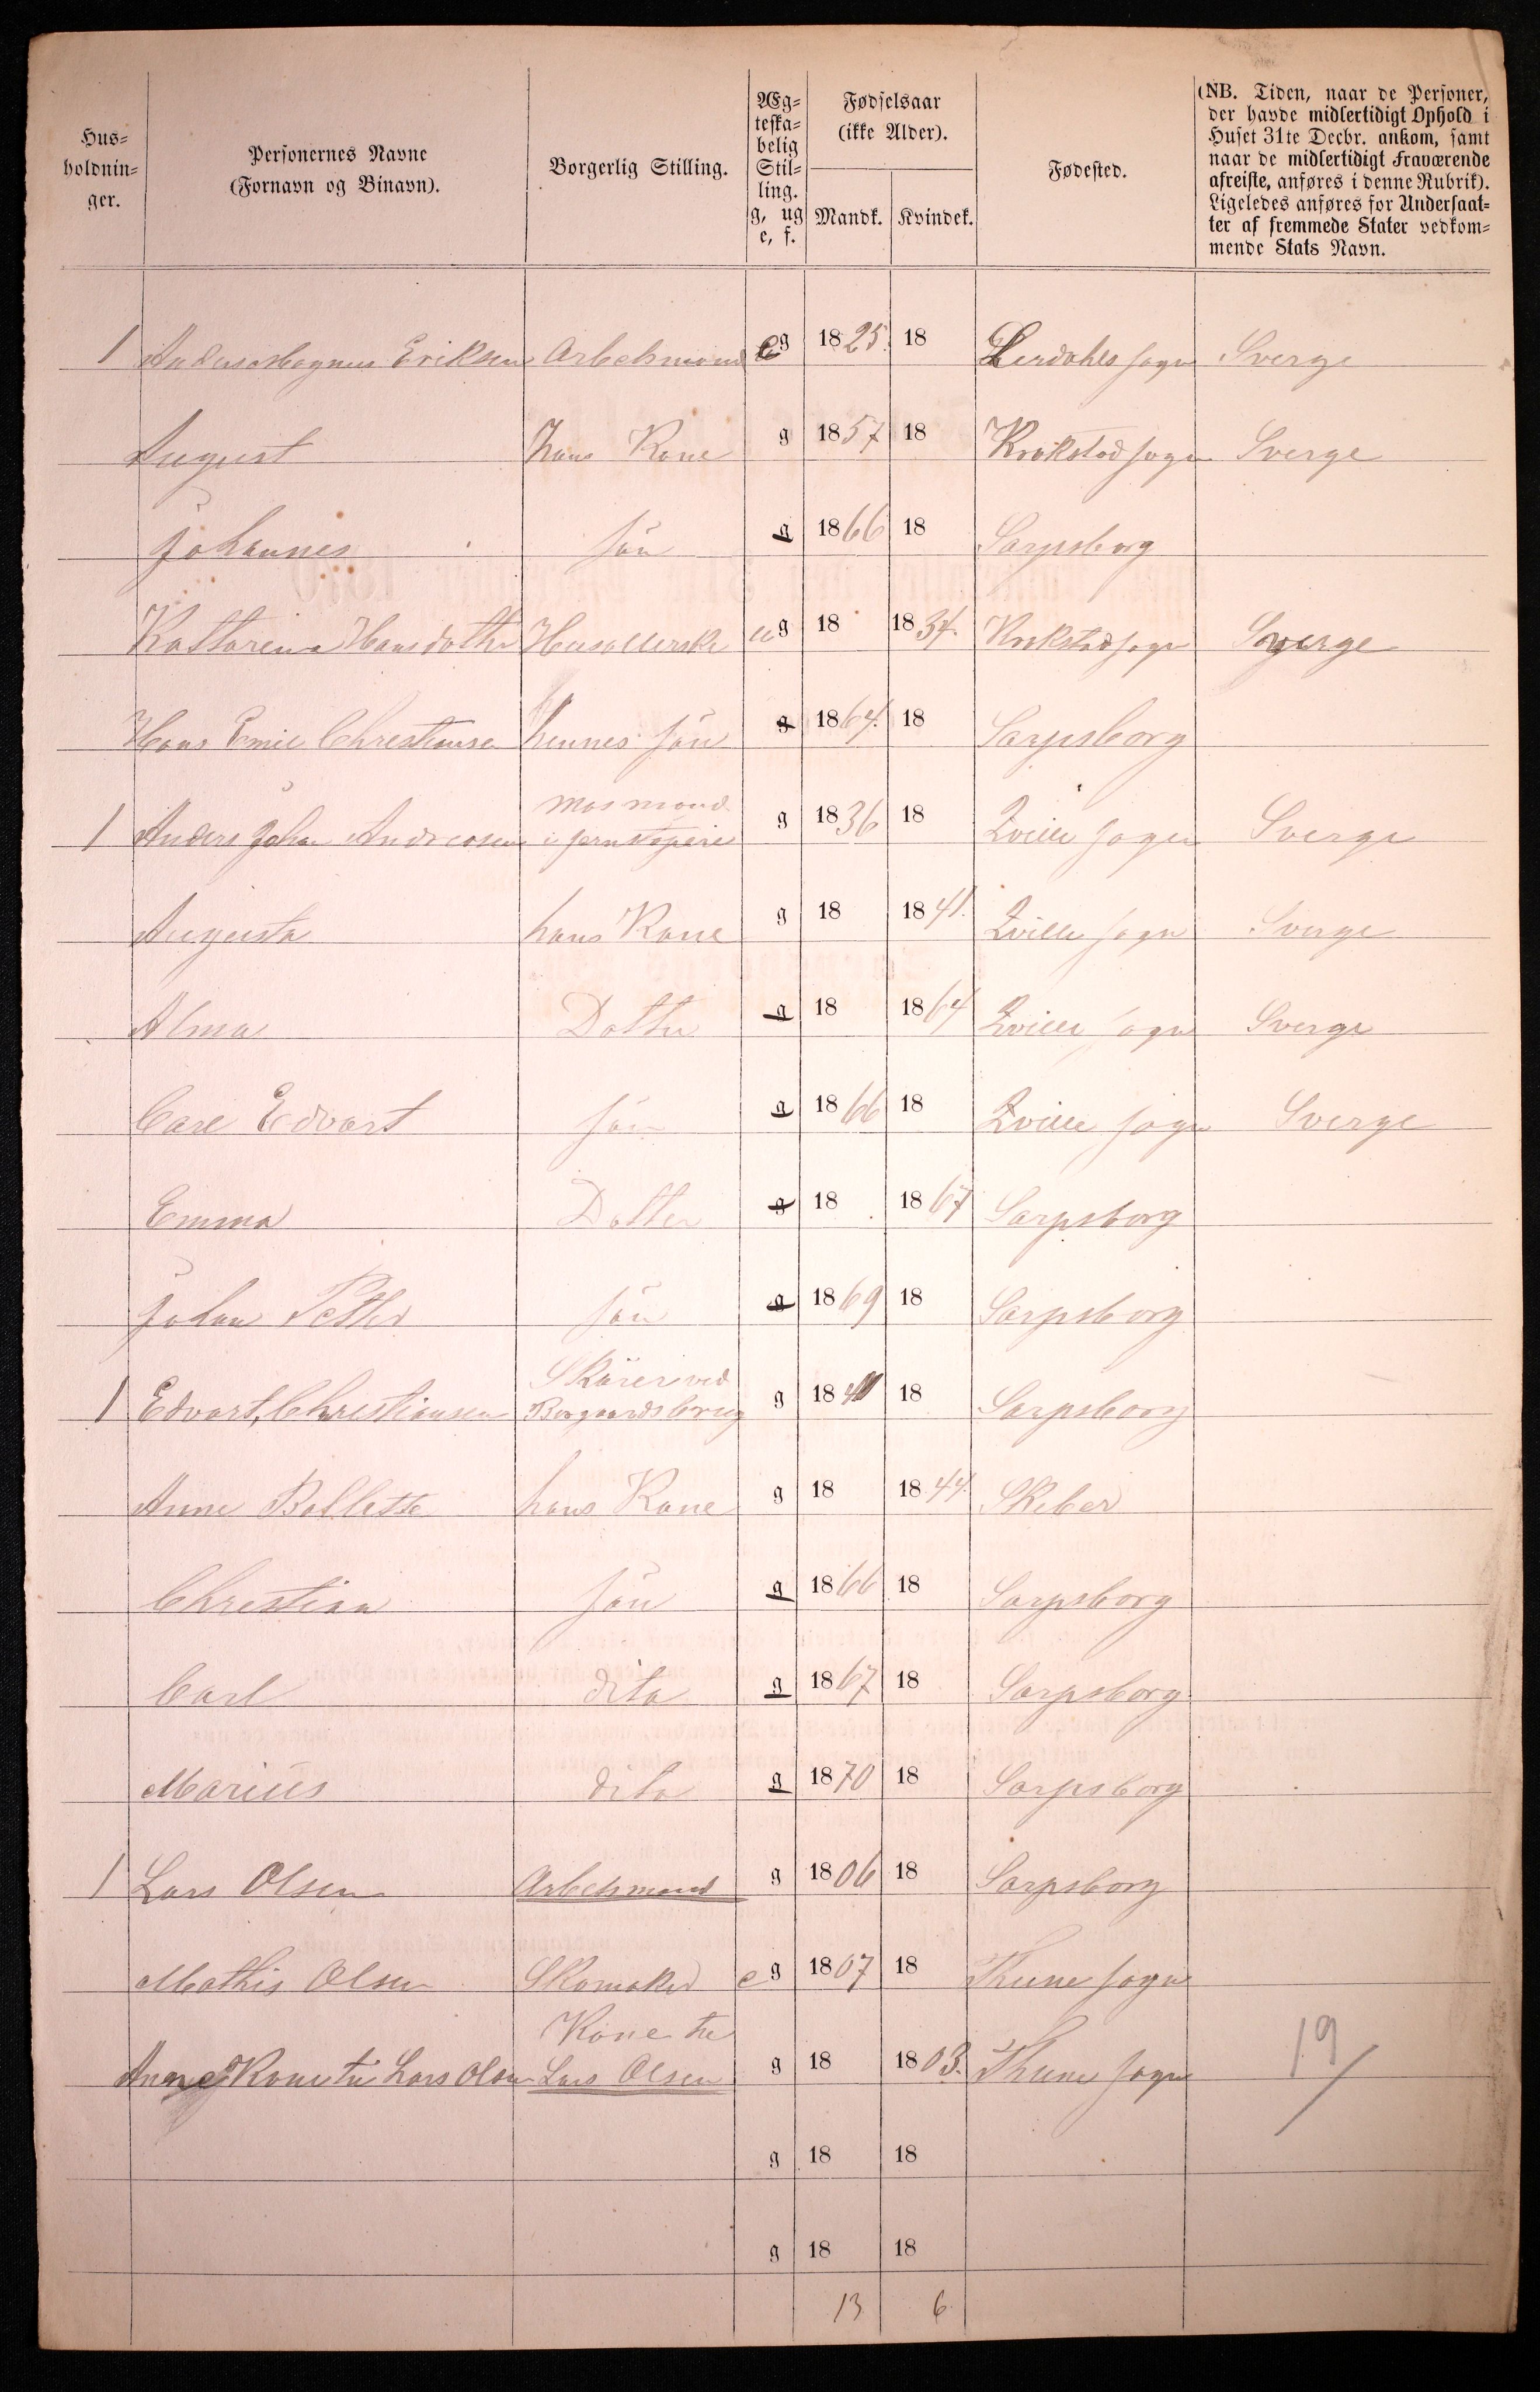 Hus=
holdnin=
ger.
Personernes Navne
(Fornavn og Binavn).
Borgerlig Stilling.
Æg=
teska=
belig
Stil=
ling.
g, ug
e, f.
Fødselsaar
(ikke Alder).
Mandk. Kvindek.
Fødested.
(NB. Tiden, naar de Personer,
der havde midlertidigt Ophold i
Huset 31te Decbr. ankom, samt
naar de midlertidigt Fraværende
afreiste, anføres i denne Rubrik).
Ligeledes anføres for Undersaat=
ter af fremmede Stater vedkom=
mende Stats Navn.
1 Anders Magnus Eriksen Arbedsmand e g 1825. 18 Lerdahls sogn Sverge
August hans Kone g 1857 18 Krokstad sogn Sverge
Johannes sön g 1866 18 Sarpsborg
Kattarina Hansdotter Husollerske ug 18 1834. Krokstad sogn Sverge
Hans Emil Christiansen hennes sön g 1864. 18 Sarpsborg
mas mand
1 Anders Johan Andreasen i jernstøperi g 1836 18 Qville sogn Sverge
Augusta hans Kone g 18 1841. Qville sogn Sverge
Alma Dotter g 18 1864 Qville sogn Sverge
Carl Edvart sön g 1866 18 Qville sogn Sverge
Emma Dotter g 18 1867 Sarpsborg
Johan Petter sön g 1869 18 Sarpsborg
Skärer ved
1 Edvart, Christiansen Borgaards brug g 1841 18 Sarpsborg
Anne Bollette hans Kone g 18 1844. Skiber
Christian sön g 1866 18 Sarpsborg
Carl dito g 1867 18 Sarpsborg
Marius dito g 1870 18 Sarpsborg
1 Lars Olsen Arbedsmand g 1806 18 Sarpsborg
Mathis Olsen Skomaker e g 1807 18 Thune sogn
Kone til
Anne Kone til Lars Olsen Lars Olsen g 18 1803. Thune sogn
19
g 18 18
g 18 18
13 6